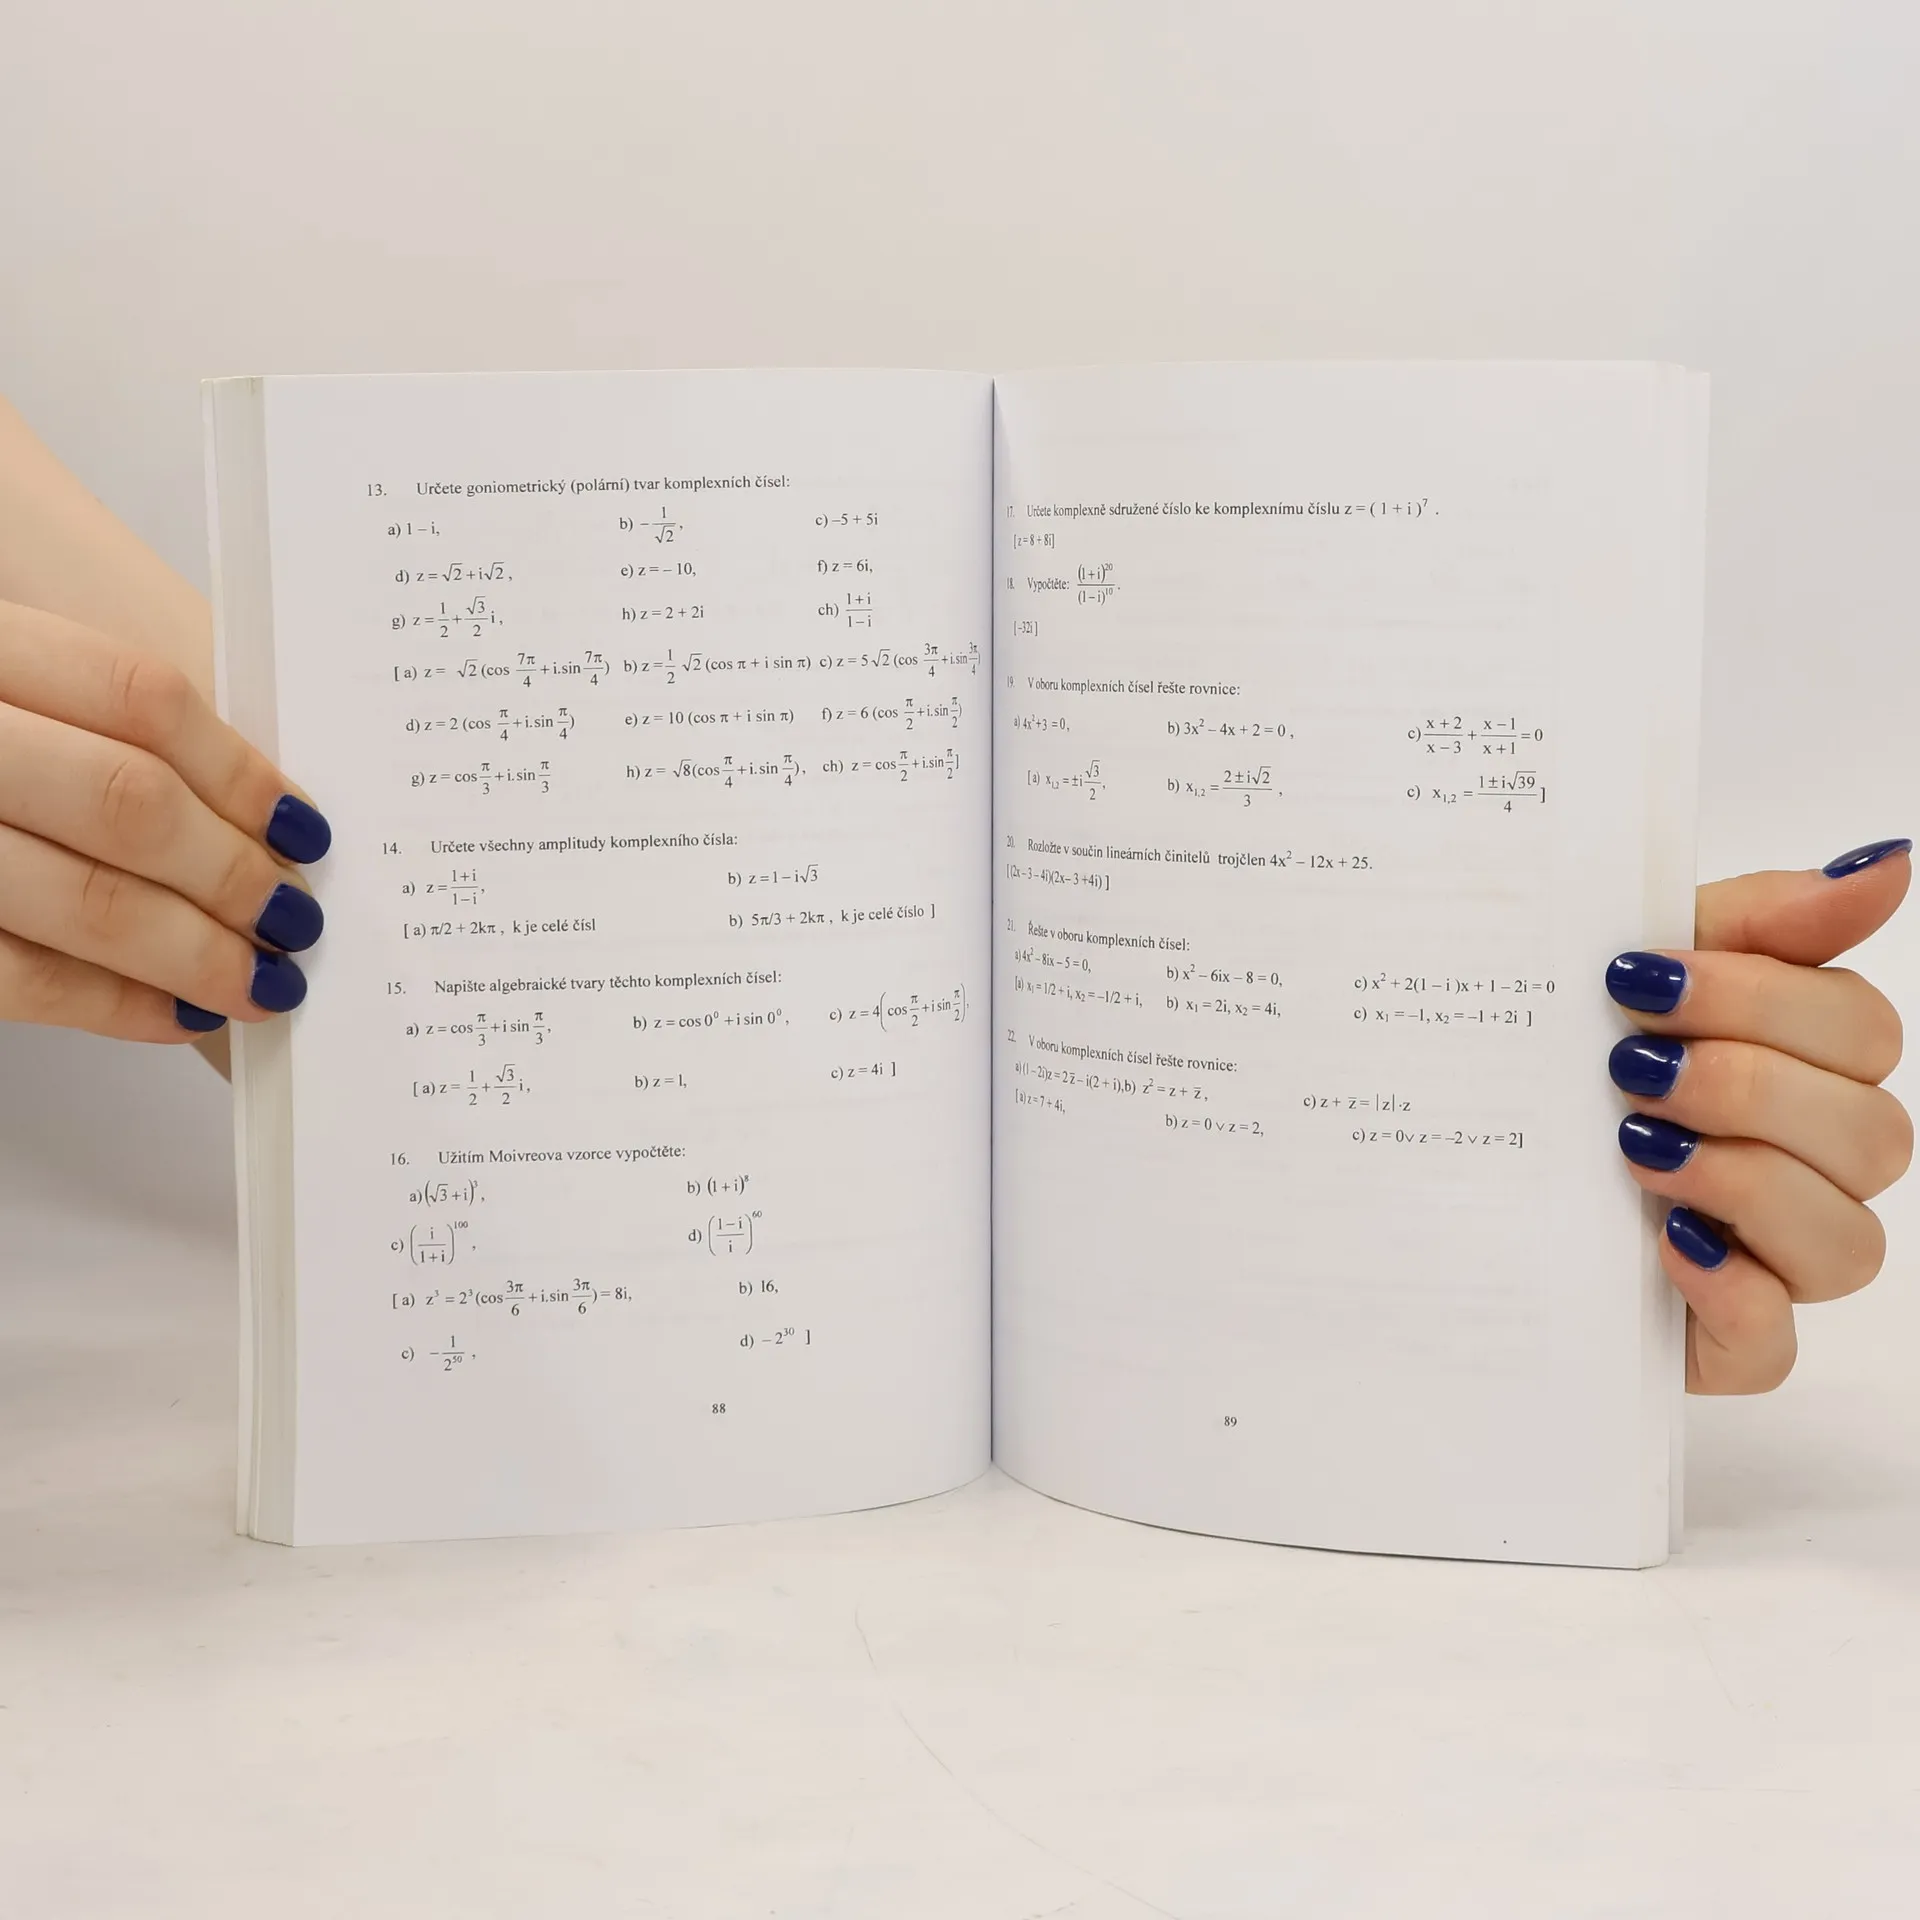 13. Určete goniometrický (polární) tvar komplexních čísel:
a) 1 – i, b) $-\frac{1}{\sqrt{2}}$, c) –5 + 5i
d) z = √2 + i√2, e) z = – 10, f) z = 6i,
g) z = $\frac{1}{2}+\frac{\sqrt{3}}{2}$i, h) z = 2 + 2i ch) $\frac{1+i}{1-i}$
[ a) z = √2 (cos $\frac{7π}{4}$ + i.sin $\frac{7π}{4}$) b) z = $\frac{1}{2}$ √2 (cos π + i sin π) c) z = 5 √2 (cos $\frac{3π}{4}$ + i.sin $\frac{3π}{4}$)
d) z = 2 (cos $\frac{π}{4}$ + i.sin $\frac{π}{4}$) e) z = 10 (cos π + i sin π) f) z = 6 (cos $\frac{π}{2}$ + i.sin $\frac{π}{2}$)
g) z = cos $\frac{π}{3}$ + i.sin $\frac{π}{3}$ h) z = √8(cos $\frac{π}{4}$ + i.sin $\frac{π}{4}$), ch) z = cos $\frac{π}{2}$ + i.sin $\frac{π}{2}$]
14. Určete všechny amplitudy komplexního čísla:
a) z = $\frac{1+i}{1-i}$, b) z = 1 – i√3
[ a) π/2 + 2kπ , k je celé čísl b) 5π/3 + 2kπ , k je celé číslo ]
15. Napište algebraické tvary těchto komplexních čísel:
a) z = cos $\frac{π}{3}$ + i sin $\frac{π}{3}$, b) z = cos 0⁰ + i sin 0⁰, c) z = 4(cos $\frac{π}{2}$ + i sin $\frac{π}{2}$),
[ a) z = $\frac{1}{2}+\frac{\sqrt{3}}{2}$i, b) z = 1, c) z = 4i ]
16. Užitím Moivreova vzorce vypočtěte:
a) (√3 + i)³, b) (1 + i)⁸
c) $\left(\frac{i}{1+i}\right)^{100}$, d) $\left(\frac{1-i}{i}\right)^{60}$
[ a) z³ = 2³(cos $\frac{3π}{6}$ + i.sin $\frac{3π}{6}$) = 8i, b) 16,
c) $-\frac{1}{2^{50}}$, d) – 2³⁰ ]
88
17. Určete komplexně sdružené číslo ke komplexnímu číslu z = ( 1 + i )⁷ .
[z = 8 + 8i]
18. Vypočtěte: $\frac{(1+i)^{20}}{(1-i)^{10}}$.
[–32i]
19. V oboru komplexních čísel řešte rovnice:
a) 4x² + 3 = 0, b) 3x² – 4x + 2 = 0 , c) $\frac{x+2}{x-3}+\frac{x-1}{x+1}=0$
[a) x₁,₂ = ±i$\frac{\sqrt{3}}{2}$, b) x₁,₂ = $\frac{2±i\sqrt{2}}{3}$, c) x₁,₂ = $\frac{1±i\sqrt{39}}{4}$ ]
20. Rozložte v součin lineárních činitelů trojčlen 4x² – 12x + 25.
[(2x – 3 – 4i)(2x – 3 + 4i) ]
21. Řešte v oboru komplexních čísel:
a) 4x² – 8ix – 5 = 0, b) x² – 6ix – 8 = 0, c) x² + 2(1 – i )x + 1 – 2i = 0
[a) x₁ = 1/2 + i, x₂ = –1/2 + i, b) x₁ = 2i, x₂ = 4i, c) x₁ = –1, x₂ = –1 + 2i ]
22. V oboru komplexních čísel řešte rovnice:
a) (1 – 2i)z = 2z̅ – i(2 + i),b) z² = z + z̅, c) z + z̅ = |z|·z
[a) z = 7 + 4i, b) z = 0 ∨ z = 2, c) z = 0∨ z = –2 ∨ z = 2]
89